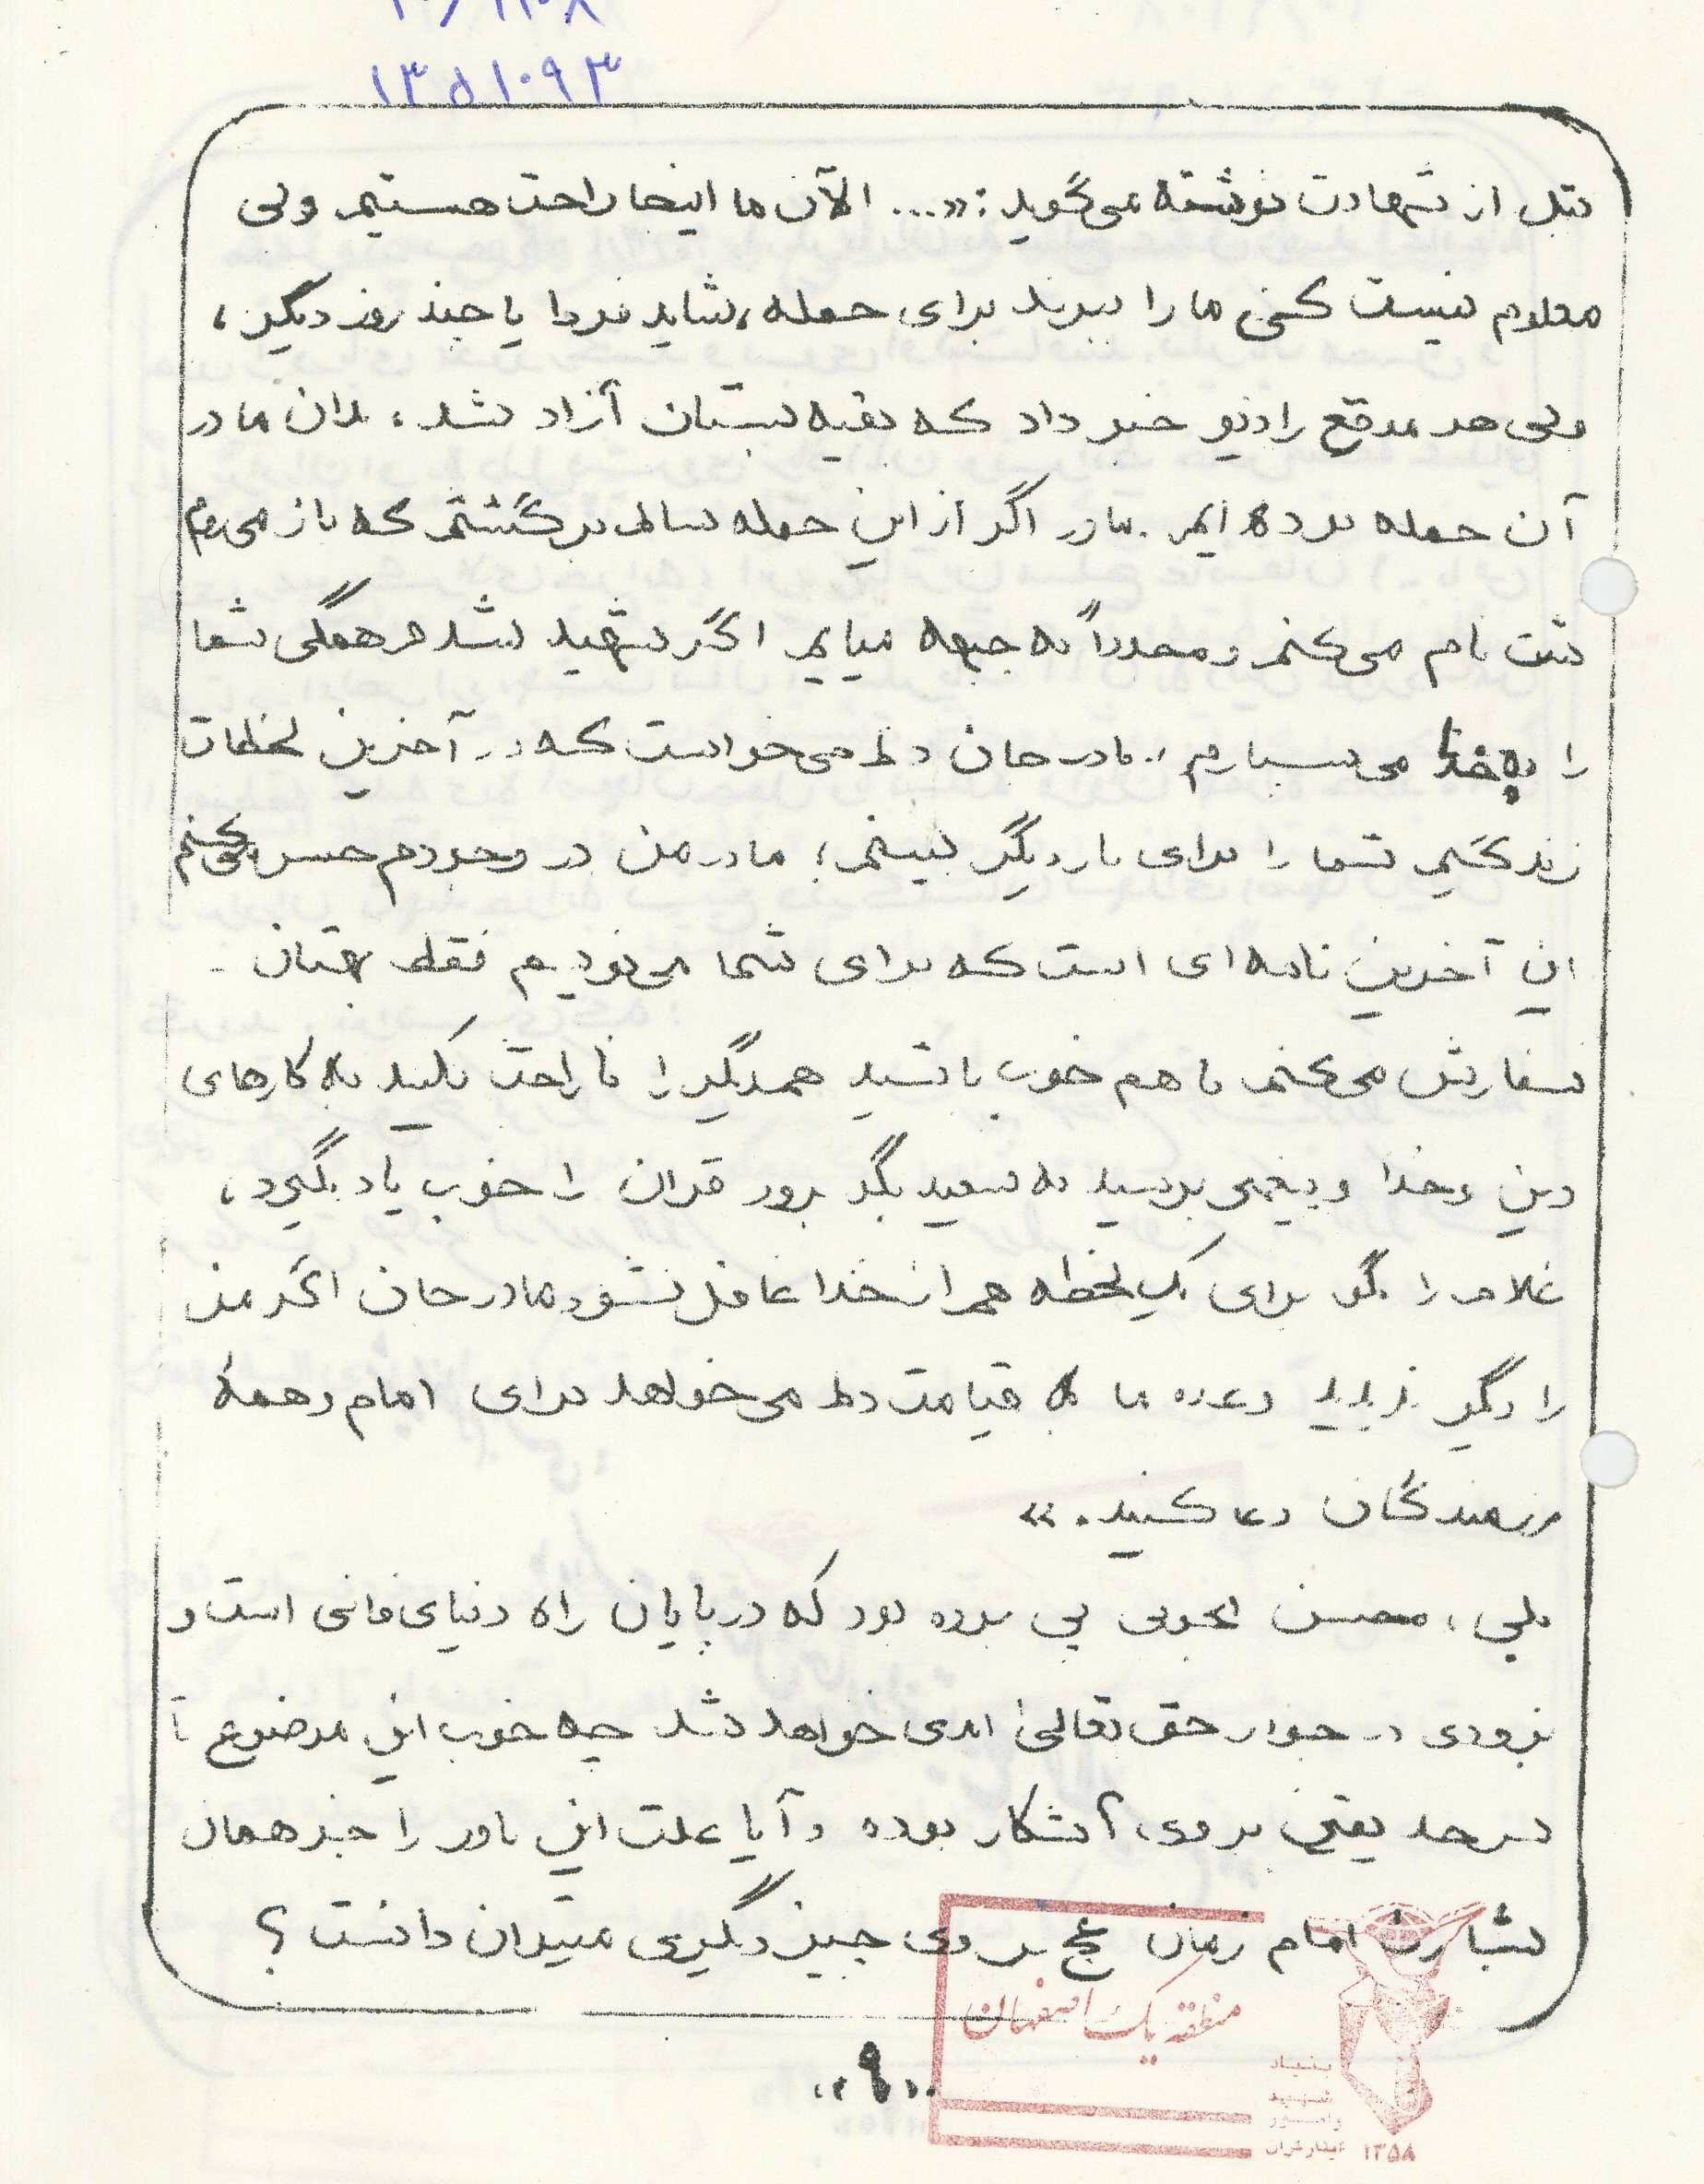 ۱۳۵۱۰۹۳
قبل از شهادت نوشته می‌گوید: «... الآن ما اینجا راحت هستیم ولی
معلوم نیست کی ما را ببرند برای حمله، شاید فردا یا چند روز دیگر،
ولی هر موقع رادیو خبر داد که بقیه بستان آزاد شد، بدان ما در
آن حمله بوده ایم. مادر اگر از این حمله سالم برگشتم که باز می‌روم
ثبت نام می‌کنم و مجدداً به جبهه میایم اگر شهید شدم همگی شما
را به خدا می‌سپارم، مادر جان دلم می‌خواست که در آخرین لحظات
زندگیم شما را برای بار دیگر ببینم؛ مادر من در وجودم حس می‌کنم
این آخرین نامه‌ای است که برای شما می‌نویسم فقط بهتان
سفارش می‌کنم با هم خوب باشید همدیگر را ناراحت نکنید به کارهای
دین و خدا و پیغمبر برسید به سعید بگو برود قرآن را خوب یاد بگیرد،
غلام را بگو برای یک لحظه هم از خدا غافل نشود مادر جان اگر من
را دیگر ندیدید وعده ما به قیامت دلم می‌خواهد برای امام و همهٔ
رزمندگان دعا کنید.»
بلی، محسن بخوبی پی برده بود که در پایان راه دنیای فانی است و
بزودی در جوار حق تعالی ابدی خواهد شد چه خوب این موضوع تا
سرحد یقین بر وی آشکار بوده و آیا علت این باور را جز همان
بشارت امام زمان عج بر وی چیز دیگری میتوان دانست؟
۰۰۹۰۰
منطقه یک اصفهان
بنیاد
شهید
و امور
ایثارگران
۱۳۵۸